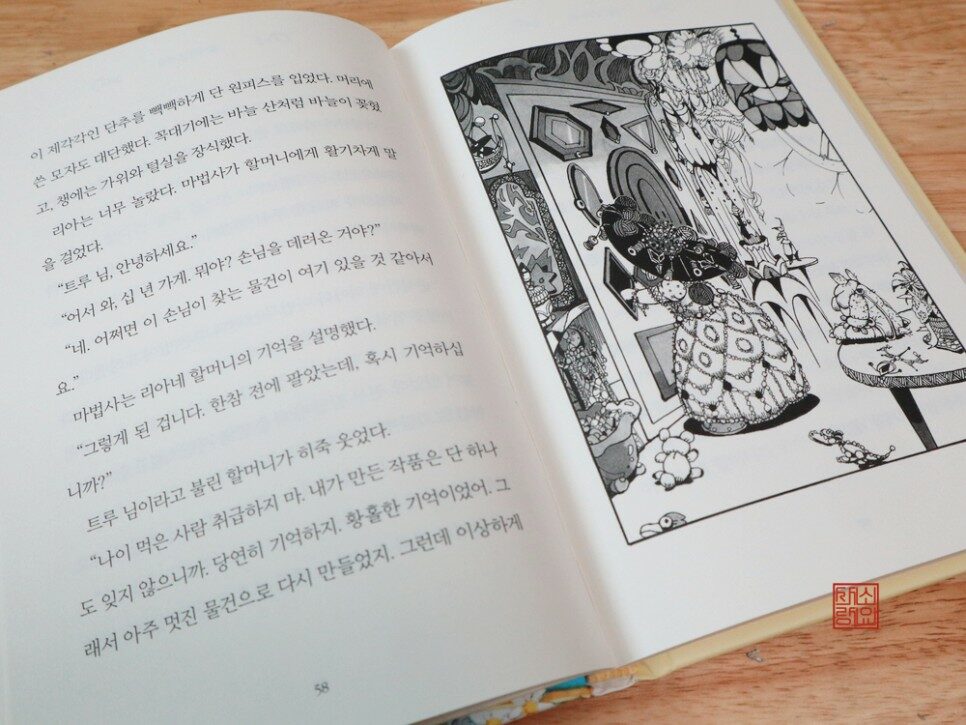 이 제각각인 단추를 빽빽하게 단 원피스를 입었다. 머리에
쓴 모자도 대단했다. 꼭대기에는 바늘 산처럼 바늘이 꽂혔
고, 챙에는 가위와 털실을 장식했다.
리아는 너무 놀랐다. 마법사가 할머니에게 활기차게 말
을 걸었다.
“트루 님, 안녕하세요.”
“어서 와, 십 년 가게. 뭐야? 손님을 데려온 거야?”
“네. 어쩌면 이 손님이 찾는 물건이 여기 있을 것 같아서
요.”
마법사는 리아네 할머니의 기억을 설명했다.
“그렇게 된 겁니다. 한참 전에 팔았는데, 혹시 기억하십
니까?”
트루 님이라고 불린 할머니가 히죽 웃었다.
“나이 먹은 사람 취급하지 마. 내가 만든 작품은 단 하나
도 잊지 않으니까. 당연히 기억하지. 황홀한 기억이었어. 그
래서 아주 멋진 물건으로 다시 만들었지. 그런데 이상하게
58